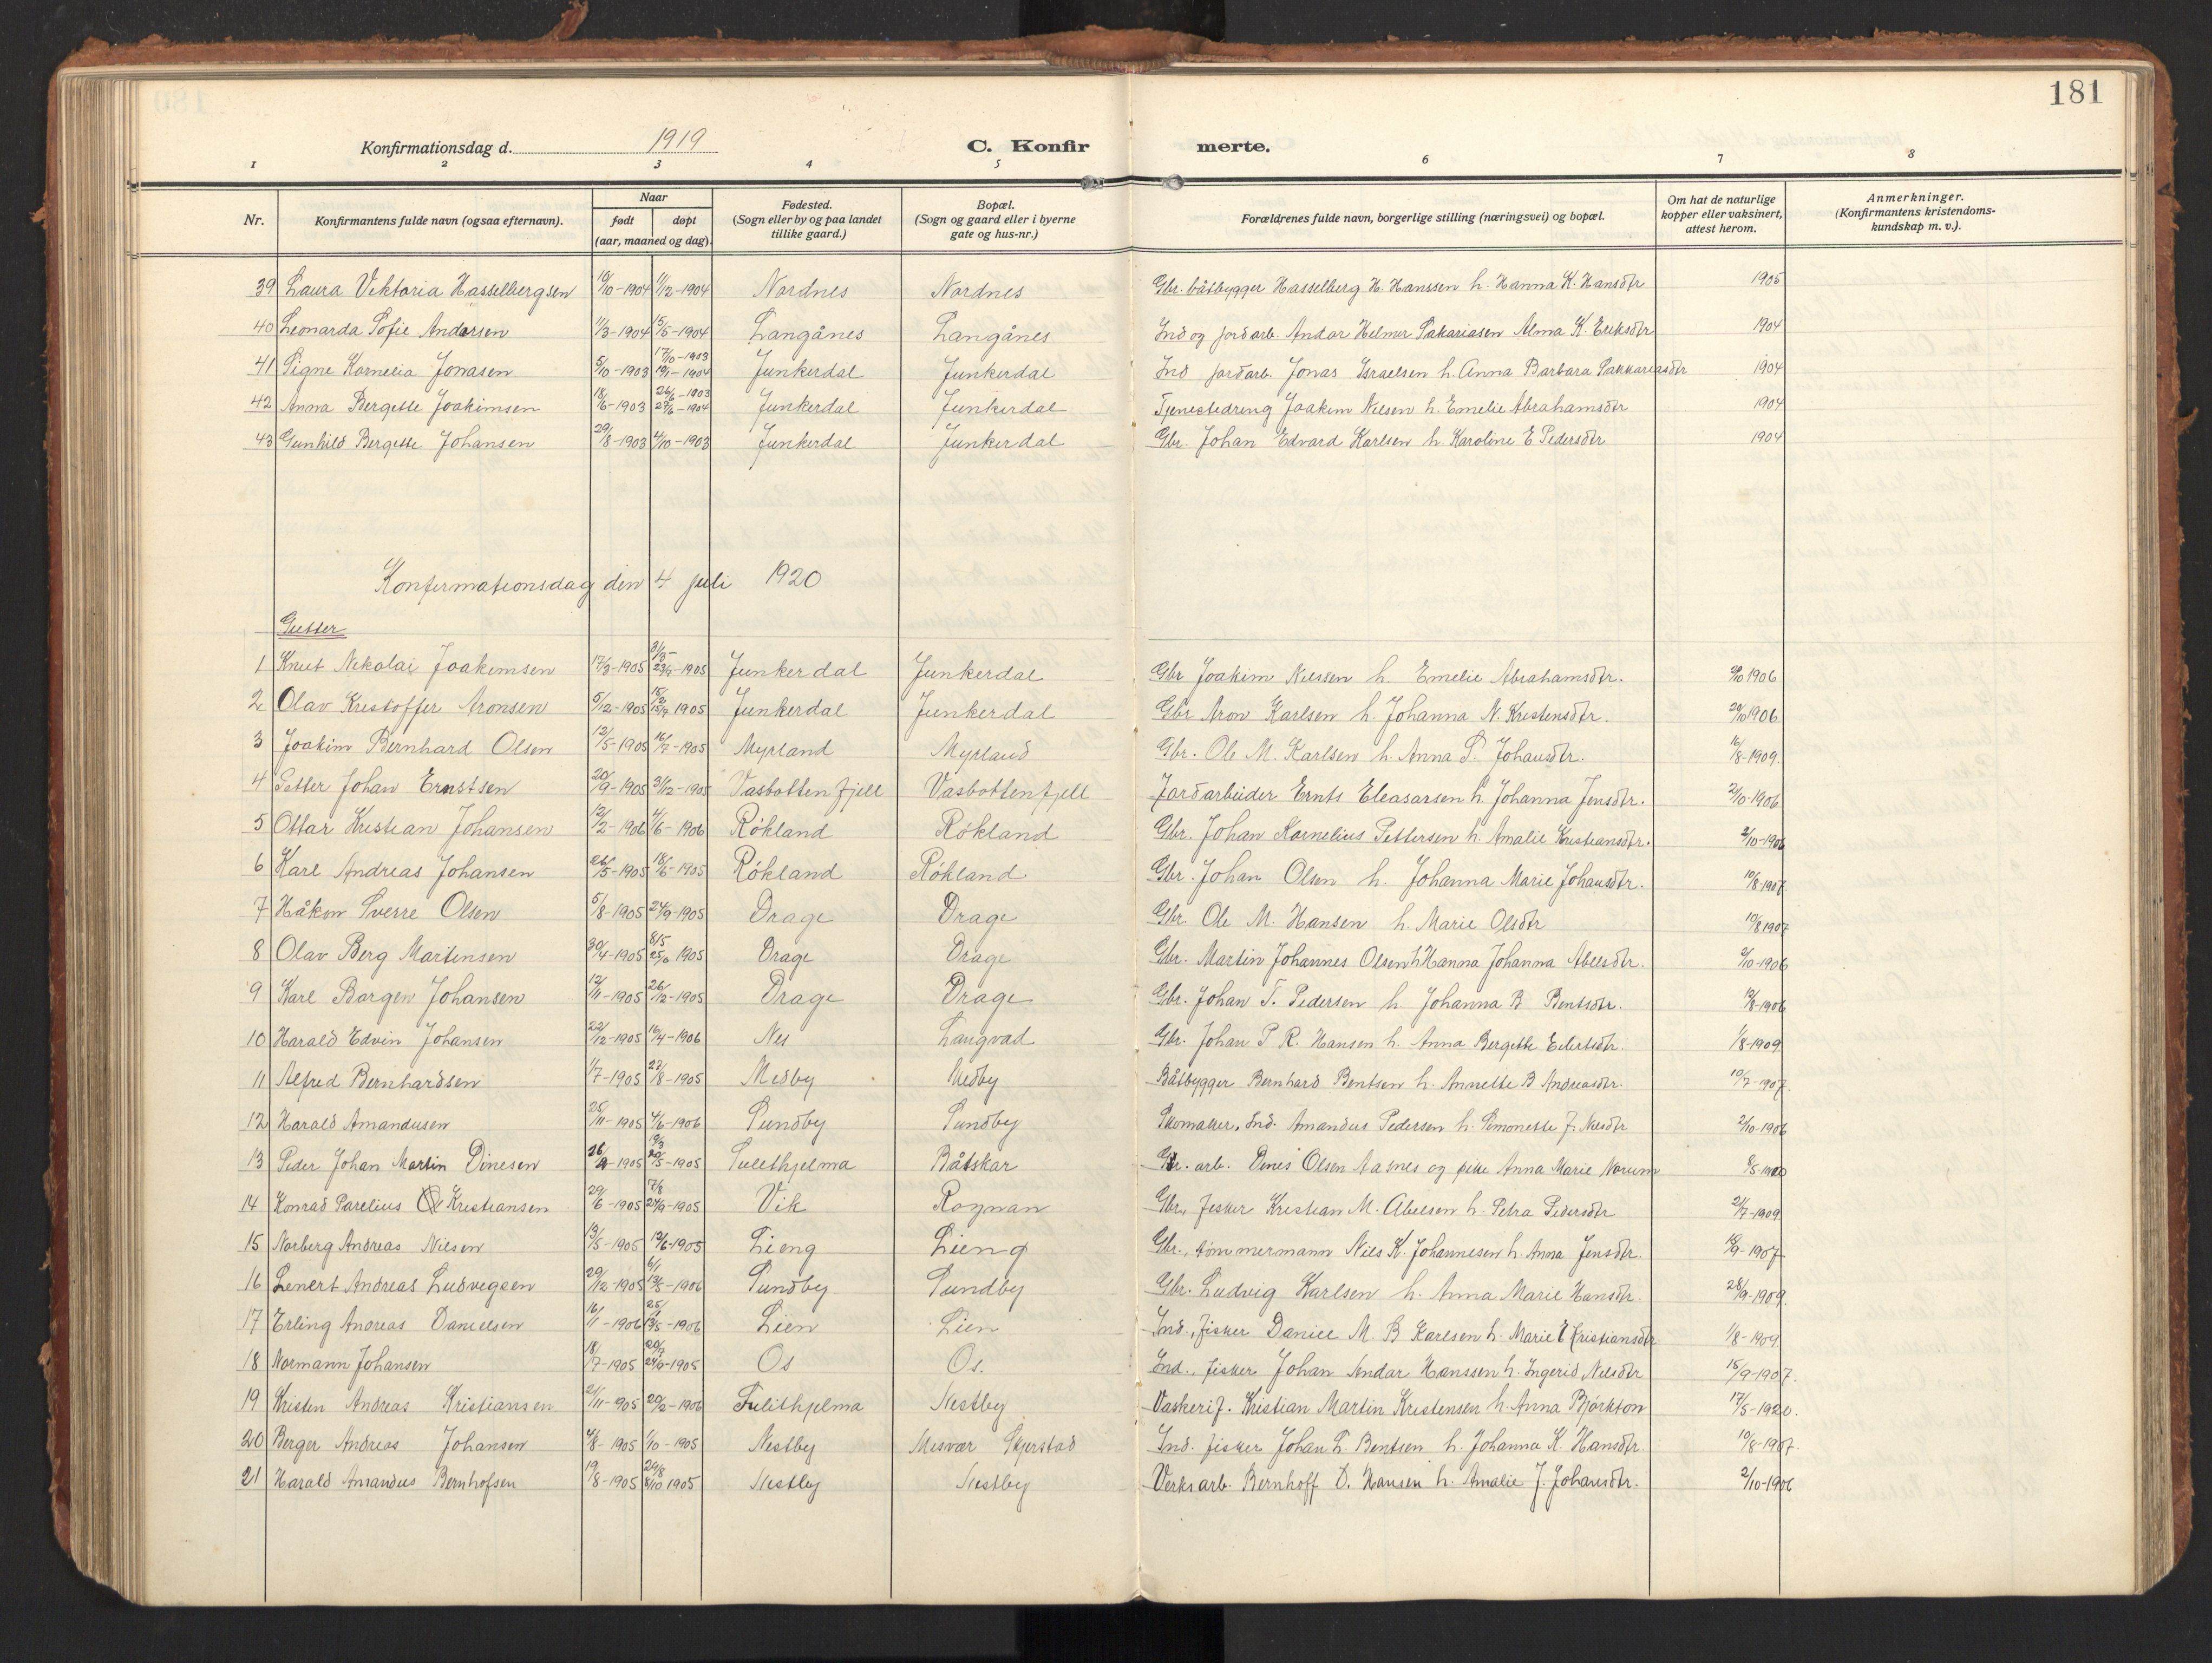 181
Konfirmationsdag d. 1919
C. Konfirmerte.
1 2 3 4 5 6 7 8
Nr. | Konfirmantens fulde navn (ogsaa efternavn). | Naar født døpt (aar, maaned og dag). | Fødested. (Sogn eller by og paa landet tillike gaard.) | Bopæl. (Sogn og gaard eller i byerne gate og hus-nr.) | Forældrenes fulde navn, borgerlige stilling (næringsvei) og bopæl. | Om hat de naturlige kopper eller vaksinert, attest herom. | Anmerkninger. (Konfirmantens kristendoms-kundskap m. v.).
39 Laura Viktoria Hasselbergsen 10/10-1904 11/12-1904 Nordnes Nordnes Gbr. båtbygger Hasselberg H. Hanssen h. Hanna K. Hansdtr 1905
40 Leonarda Sofie Andersen 11/3-1904 15/5-1904 Langånes Langånes Ind og jordarb. Andor Helmer Sakariasen Alma K. Eriksdtr 1904
41 Signe Kornelia Jonasen 5/10-1903 17/10-1903 Junkerdal Junkerdal Ind jordarb. Jonas Israelsen h. Anna Barbara Sakkariasdtr 1904
42 Anna Bergette Joakimsen 18/6-1903 26/6-1903 Junkerdal Junkerdal Tjenestedreng Joakim Nilsen h. Emelie Abrahamsdtr 1904
43 Gunhild Bergette Johansen 29/8-1903 4/10-1903 Junkerdal Junkerdal Gbr. Johan Edvard Karlsen h. Karoline E Pedersdtr 1904
Konfirmationsdag den 4 juli 1920
Gutter
1 Knut Nikolai Joakimsen 17/3-1905 23/7-1905 Junkerdal Junkerdal Gbr Joakim Nilssen h. Emelie Abrahamsdtr. 1906
2 Olav Kristoffer Aronsen 5/12-1905 1905 Junkerdal Junkerdal Gbr Aron Karlsen h. Johanna N. Kristensdtr. 29/10 1906
3 Joakim Bernhard Olsen 12/5-1905 16/7-1905 Myrland Myrland Gbr. Ole M. Karlsen h. Anna S. Johansdtr. 16/8-1909
4 Petter Johan Ernstsen 20/9-1905 3/12-1905 Vasbottenfjell Vasbottenfjell Jordarbeider Ernts Eleasarsen h Johanna Jensdtr. 2/10-1906
5 Ottar Kristian Johansen 12/2-1906 4/6-1906 Rökland Rökland Gbr. Johan Kornelius Pettersen h. Amalie Kristiansdtr. 2/10-1906
6 Karl Andreas Johansen 26/5-1905 18/6-1905 Rökland Rökland Gbr. Johan Olsen h. Johanna Marie Johansdtr. 10/8-1907
7 Håkon Sverre Olsen 5/8-1905 24/9-1905 Drage Drage Gbr. Ole M. Hansen h. Marie Olsdtr 10/8 1907
8 Olav Berg Martinsen 30/4-1905 8/5 1905 Drage Drage Gbr. Martin Johannes Olsen h Hanna Johanna Abelsdtr. 2/10-1906
9 Karl Borgen Johansen 12/11-1905 26/12-1905 Drage Drage Gbr. Johan T. Pedersen h. Johanna B Bentsdtr. 1906
10 Harald Edvin Johansen 22/12-1905 16/4-1906 Nes Langvad Gbr. Johan P R. Hansen h. Anna Bergette Eilertsdtr. 1/8-1909
11 Alfred Bernhardsen 1/7-1905 27/8-1905 Medby Medby Båtbygger Bernhard Bentsen h. Annette B Andreasdtr. 10/7-1907.
12 Harald Amandusen 25/11-1905 4/6-1906 Sundby Sundby Skomaker, Ind. Amandus Pedersen h. Simonette J. Nilsdtr 2/10-1906
13 Peder Johan Martin Dinesen 26/2-1905 19/3 -1905 Sulithjelma Båtskar Gr. arb. Dines Olsen Aasnes og pike Anna Marie Norum 8/5 1920
14 Konrad Parelius Kristiansen 29/6-1905 7/8 24/9-1905 Vik Rognan Gbr, fisker Kristian M. Abelsen h. Petra Pedersdtr 21/7-1909
15 Norberg Andreas Nilsen 13/5-1905 12/6-1905 Lieng Lieng Gbr., tömmermann Nils K. Johannesen h. Anna Jensdtr. 18/9-1907
16 Lenert Andreas Ludvigsen 29/12-1905 6/1 13/5-1906 Sundby Sundby Gbr. Ludvig Karlsen h. Anna Marie Hansdtr. 28/9-1909.
17 Erling Andreas Danielsen 16/1-1906 13/5-1906 Lien Lien Ind., fisker Daniel M. B Karlsen h. Marie E Kristiansdtr 1/8-1909
18 Normann Johansen 18/7-1905 24/9-1905 Os Os. Ind., fisker Johan Andar Hanssen h. Ingerid Nilsdtr 15/9-1907.
19 Kristen Andreas Kristiansen 21/11-905 20/2-1906 Sulithjelma Nestby Vaskerif. Kristian Martin Kristensen h. Anna Björkton 17/5-1920.
20 Berger Andreas Johansen 4/8-1905 1/10-1905 Nestby Misvær Skjerstad Ind. fisker Johan L. Bentsen h. Johanna K. Hansdtr. 10/8-1907.
21 Harald Amandus Bernhofsen 19/8-1905 29/8 8/10 1905 Nestby Nestby Verksarb. Bernhoff D. Hansen h. Amalie J. Johansdtr. 2/10-1906